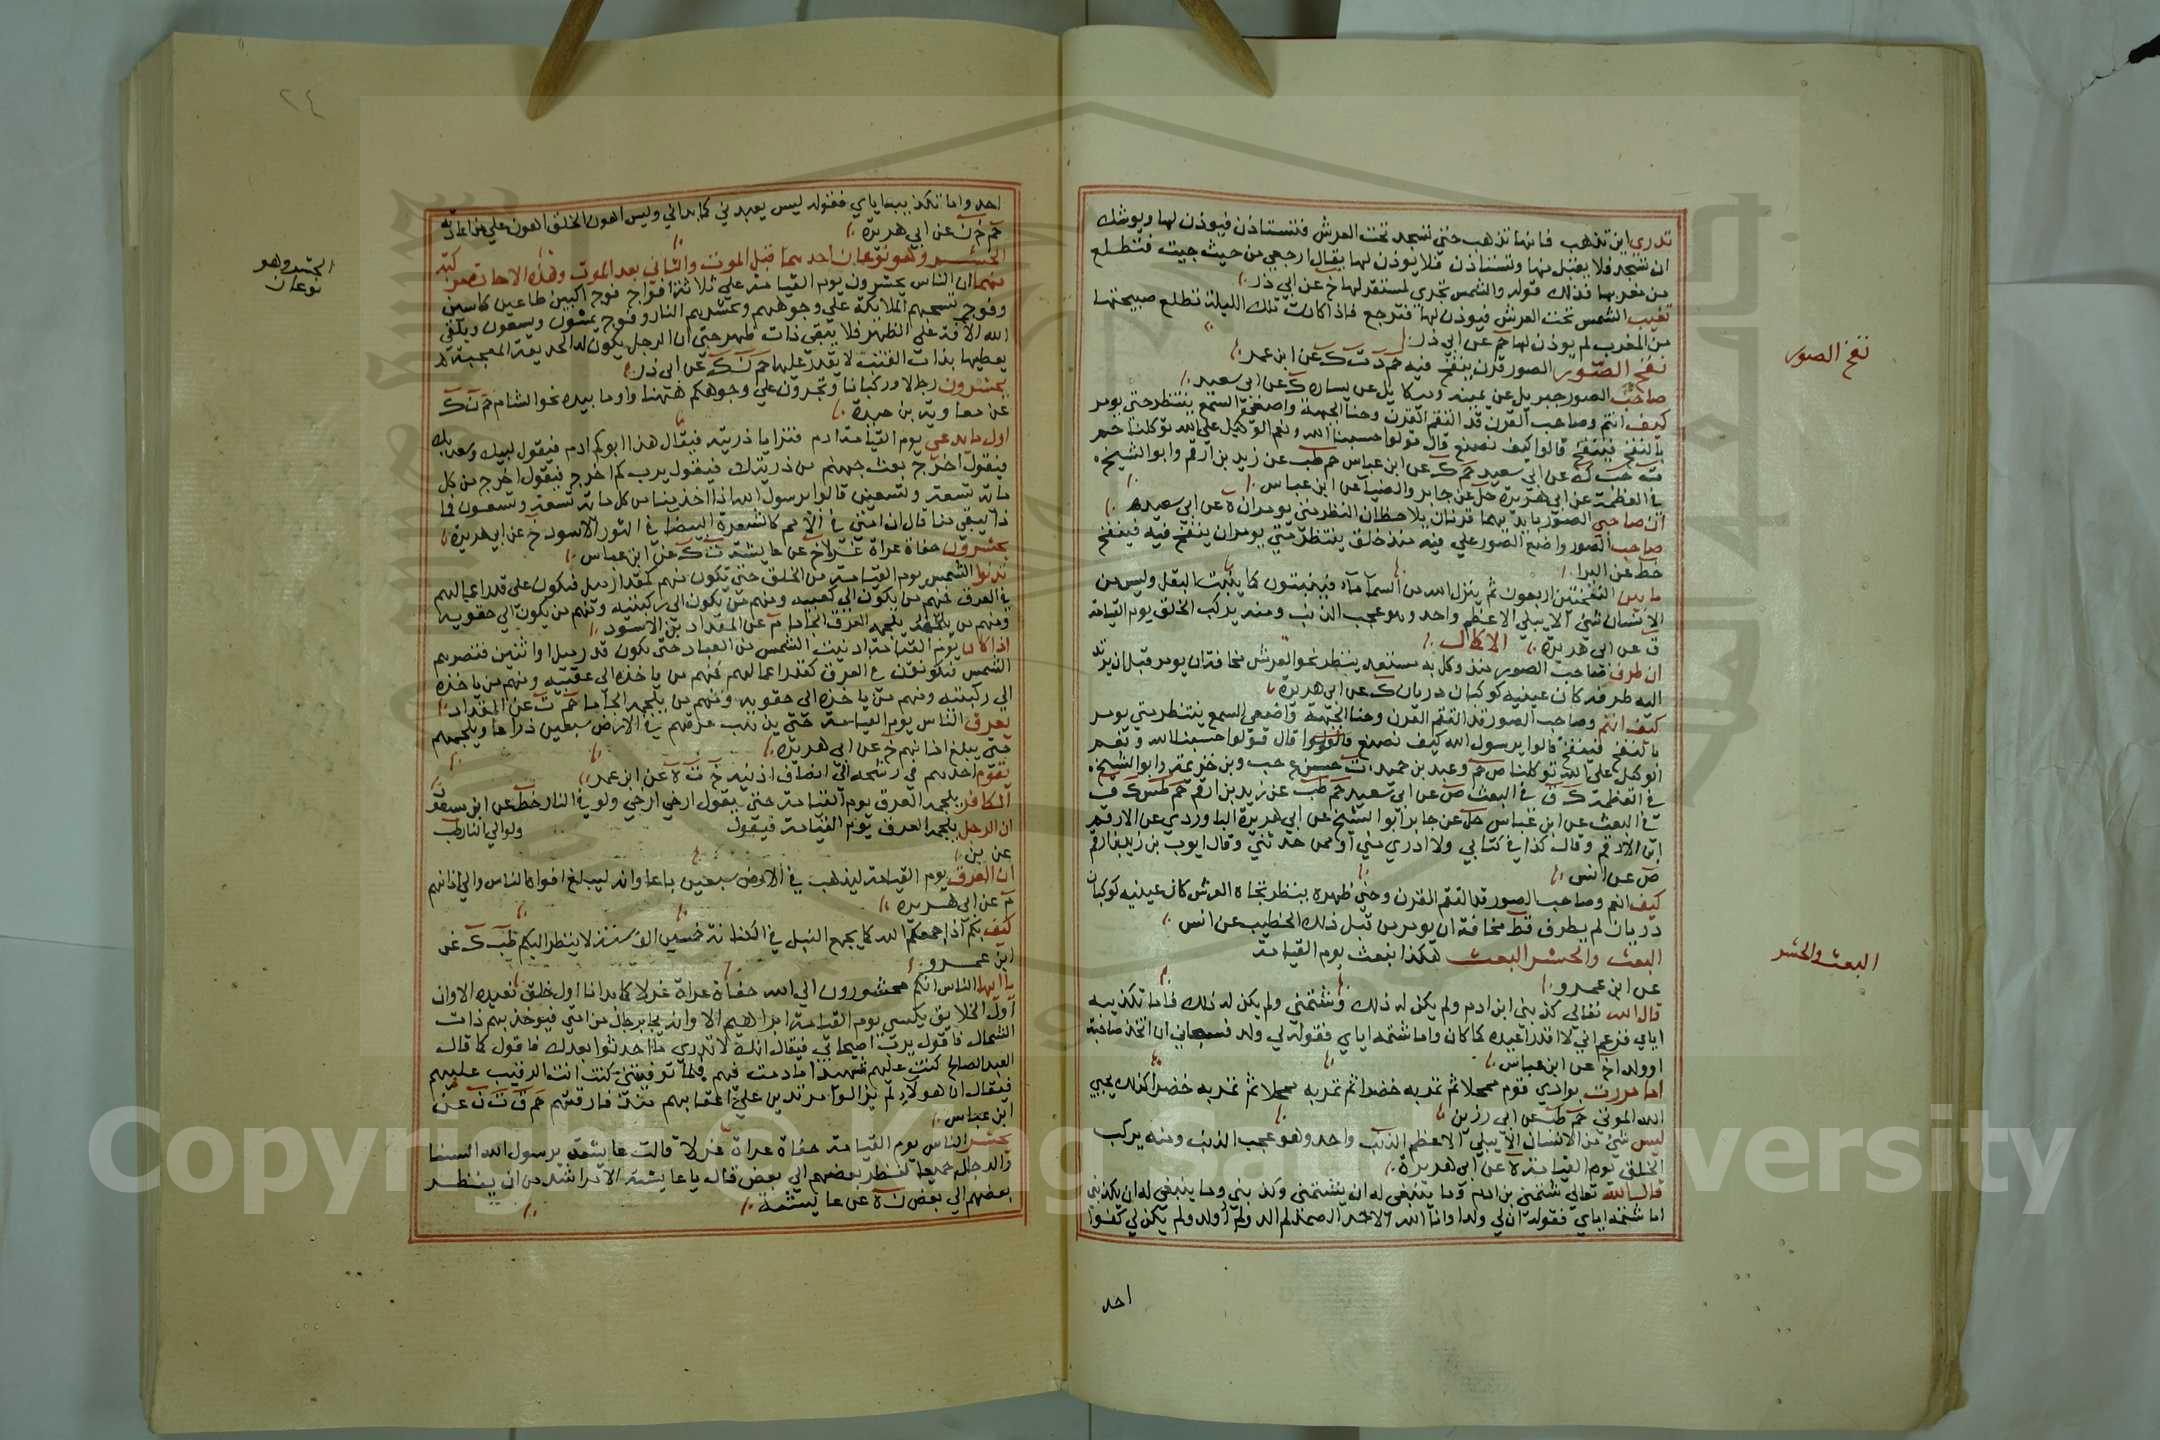 تدري اين تذهب فانها تذهب حتي تسجد تحت العرش فتستاذن فيوذن لها ويوشك
ان تسجد فلا يقبل منها وتستاذن فلا يوذن لها يقال ارجعي من حيث جيت فتطلع
من مغربها فذلك قوله والشمس تجري لمستقر لها خ عن ابي ذر
تغيب الشمس تحت العرش فيوذن لها فترجع فاذا كانت تلك الليلة تطلع صبيحتها
من المغرب لم يوذن لها حم عن ابي ذر
نفخ الصور الصور قرن ينفخ فيه حم د ت ك عن ابن عمر
نفخ الصور
صاحب الصور جبريل عن يمينه وميكايل عن يساره ك عن ابي سعيد
كيف انتم وصاحب القرن قد التقم القرن وحنا الجبهة واصغي السمع ينتظر حتي يومر
بالنفخ فينفخ قالوا كيف نصنع قال قولوا حسبنا الله ونعم الوكيل علي الله توكلنا حم
ت حب ك عن ابي سعيد حم ك عن ابن عباس حم طب عن زيد بن ارقم وابو الشيخ
في العظمة عن ابي هريرة حل عن جابر والضيا عن ابن عباس
ان صاحبي الصور بايديهما قرنان يلاحظان النظر متي يومران ه عن ابي سعيد
صاحب الصور واضع الصور علي فيه منذ خلق ينتظر متي يومر ان ينفخ فيه فينفخ
خط عن البرا
ما بين النفختين اربعون ثم ينزل الله من السما ماء فينبتون كما ينبت البقل وليس من
الانسان شئ الا يبلي الا عظم واحد وهو عجب الذنب ومنه يركب الخلق يوم القيامة
ق عن ابي هريرة الاكمال
ان طرف صاحب الصور منذ وكل به مستعد ينظر نحو العرش مخافة ان يومر قبل ان يرتد
اليه طرفه كان عينيه كوكبان دريان ك عن ابي هريرة
كيف انتم وصاحب الصور قد التقم القرن وحنا الجبهة واصغي السمع ينتظر متي يومر
بالنفخ فينفخ قالوا يرسول الله كيف نصنع قال قولوا حسبنا الله ونعم
الوكيل علي الله توكلنا ص حم وعبد بن حميد ت حسن ع حب وبن خزيمة وابو الشيخ
في العظمة ك ق في البعث ض عن ابي سعيد حم طب عن زيد بن ارقم حم طس ك ق
في البعث عن ابن عباس حل عن جابر ابو الشيخ عن ابي هريرة الباوردي عن الارقم
ابن الارقم وقال كذا في كتابي ولا ادري مني او ممن حدثني وقال ايوب بن زيد بن ارقم
ض عن انس
كيف انتم وصاحب الصور قد التقم القرن وحني ظهره ينظر تجاه العرش كان عينيه كوكبان
دريان لم يطرف قط مخافة ان يومر من قبل ذلك الخطيب عن انس
البعث والحشر البعث هكذا نبعث يوم القيامة
البعث والحشر
عن ابن عمرو
قال الله تعالي كذبني ابن ادم ولم يكن له ذلك وشتمني ولم يكن له ذلك فاما تكذيبه
اياي فزعم اني لا اقدر اعيده كما كان واما شتمه اياي فقوله لي ولد فسبحاني ان اتخذ صاحبة
او ولدا خ عن ابن عباس
اما مررت بوادي قوم ممحلا ثم تمر به خضرا ثم تمر به ممحلا ثم تمر به خضرا كذلك يحيي
الله الموتي حم طب عن ابي رزين
ليس شئ من الانسان الا يبلي الا عظم الذنب واحد وهو عجب الذنب ومنه يركب
الخلق يوم القيامة ه عن ابي هريرة
قال الله تعالي شتمني بن ادم وما ينبغي له ان يشتمني وكذبني وما ينبغي له ان يكذبني
اما شتمه اياي فقوله ان لي ولدا وانا الله الاحد الصمد لم الد ولم اولد ولم يكن لي كفوا
احد
٢٤
احد واما تكذيبه اياي فقوله ليس يعيدني كما بداني وليس اهون الخلق اهون علي من اعادته
حم خ ن عن ابي هريرة
الحشر وهو نوعان احدهما قبل الموت والثاني بعد الموت وهذه الاحاديث
الحشر وهو
نوعان
منهما ان الناس يحشرون يوم القيامة علي ثلاثة افواج فوج راكبين طاعين كاسين
وفوج تسحبهم الملائكة علي وجوههم وتحشرهم النار وفوج يمشون ويسعون ويلقي
الله الافة علي الظهر فلا يبقي ذات ظهر حتي ان الرجل يكون له الحديقة المعجبة
يعطيها بذات القتب لا يقدر عليها حم ن ك عن ابي ذر
يحشرون رجالا وركبانا وتجرون علي وجوهكم ههنا واوما بيده نحو الشام حم ت ك
عن معاوية بن حيدة
اول ما يدعي يوم القيامة ادم فتترايا ذريته فيقال هذا ابوكم ادم فيقول لبيك وسعديك
فيقول اخرج بعث جهنم من ذريتك فيقول يرب كم اخرج فيقول اخرج من كل
ماية تسعة وتسعين قالوا يرسول الله اذا اخذ منا من كل ماية تسعة وتسعون فما
ذا يبقي منا قال ان امتي في الامم كالشعرة البيضا في الثور الاسود خ عن ابي هريرة
يحشرون حفاة عراة غرلا خ عن عايشة ت ك عن ابن عباس
تدنوا الشمس يوم القيامة من الخلق حتي تكون منهم كمقدار ميل فيكون علي قدر اعمالهم
في العرق فمنهم من يكون الي كعبيه ومنهم من يكون الي ركبتيه ومنهم من يكون الي حقويه
ومنهم من يلجمه العرق الجاما م عن المقداد بن الاسود
اذا كان يوم القيامة ادنيت الشمس من العباد حتي تكون قدر ميل او اثنين فتصهرهم
الشمس فيكونون في العرق كقدر اعمالهم فمنهم من ياخذه الي عقبيه ومنهم من ياخذه
الي ركبتيه ومنهم من ياخذه الي حقويه ومنهم من يلجمه الجاما حم ت عن المقداد
يعرق الناس يوم القيامة حتي يذهب عرقهم في الارض سبعين ذراعا ويلجمهم
حتي يبلغ اذانهم خ عن ابي هريرة
يقوم احدهم في رشحه الي انصاف اذنيه خ ت ه عن ابن عمر
الكافر يلجمه العرق يوم القيامة حتي يقول ارحني ولو في النار خط عن ابن مسعود
ان الرجل يلجمه العرق يوم القيامة فيقول ولو الي النار طب
عن بن
ان العرق يوم القيامة ليذهب في الارض سبعين باعا وانه ليبلغ افواه الناس والي اذانهم
م عن ابي هريرة
كيف بكم اذا جمعكم الله كما يجمع النبل في الكنانة خمسين الف سنة لا ينظر اليكم طب ك عن
ابن عمرو
يا ايها الناس انكم محشورون الي الله حفاة عراة غرلا كما بدانا اول خلق نعيده الا وان
اول الخلايق يكسي يوم القيامة ابراهيم الا وانه يجا برجال من امتي فيوخذ بهم ذات
الشمال فاقول يرب اصحابي فيقال انك لا تدري ما احدثوا بعدك فاقول كما قال
العبد الصالح كنت عليهم شهيدا ما دمت فيهم فلما توفيتني كنت انت الرقيب عليهم
فيقال ان هولاء لم يزالوا مرتدين علي اعقابهم منذ فارقتهم حم ق ت ن عن
ابن عباس
يحشر الناس يوم القيامة حفاة عراة غرلا قالت عايشة يرسول الله النسا
والرجال جميعا ينظر بعضهم الي بعض قال يا عايشة الامر اشد من ان ينظر
بعضهم الي بعض ن ه عن عايشة
Copyright © King Saud University